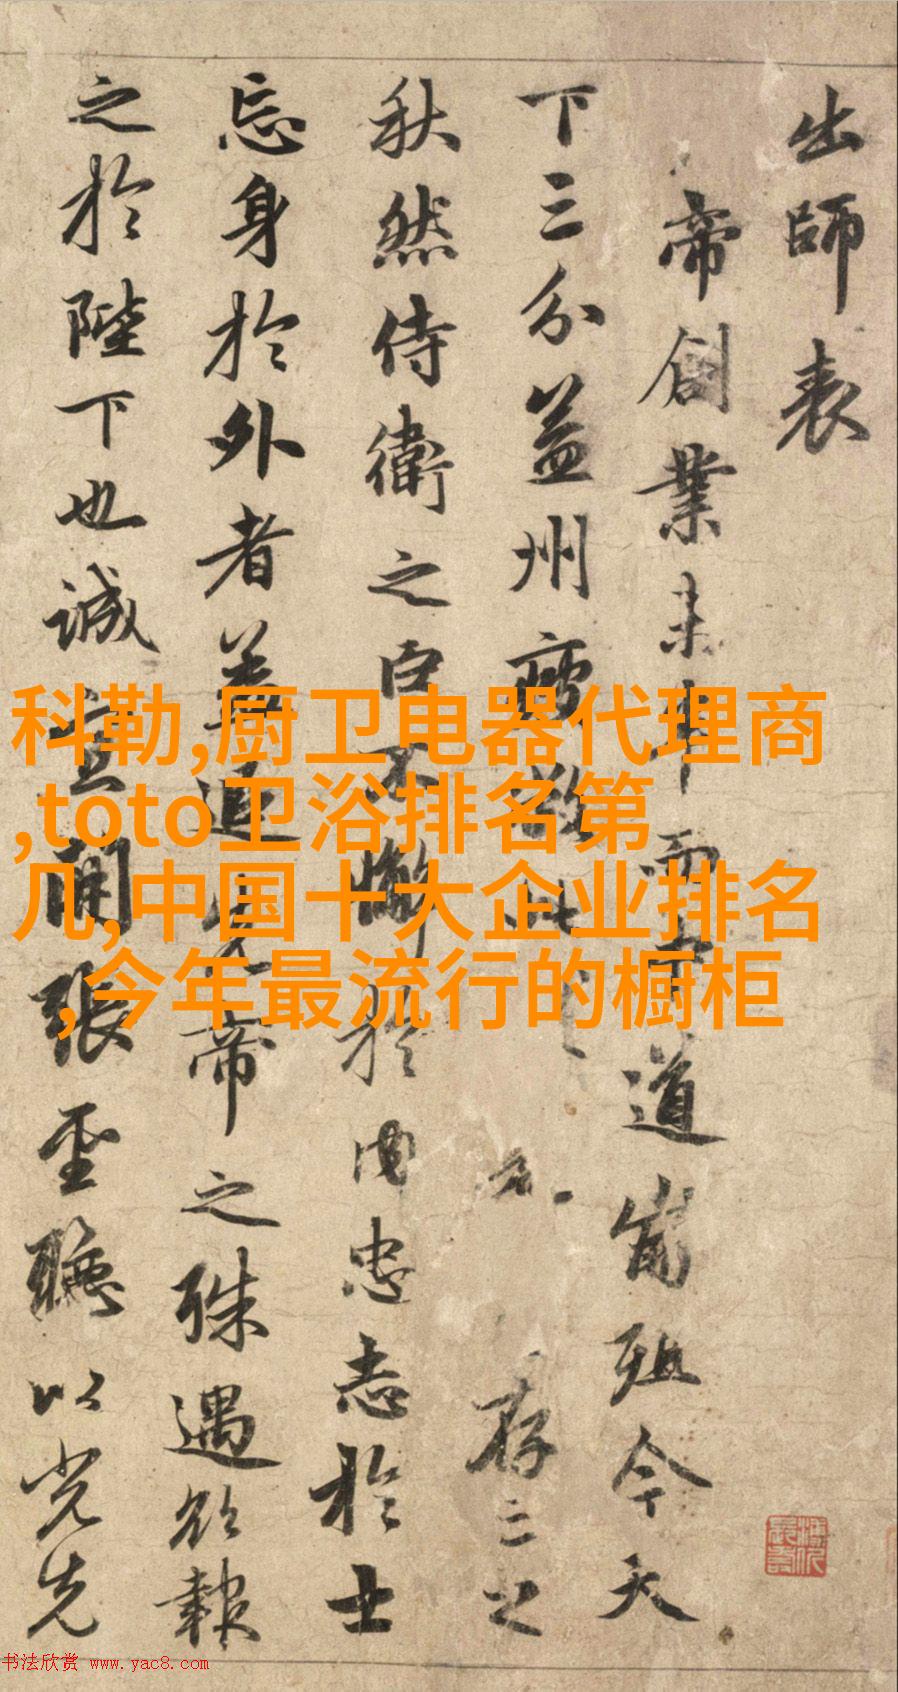 出師表
帝創業未半而中道崩殂今天
下三分益州此存之
秋然侍衛之臣不懈於內忠志於士
忘身於外者蓋追先帝之殊遇欲報
之於陛下也誠宜開張聖聽以光先
科勒,厨卫电器代理商
,toto卫浴排名第
几,中国十大企业排名
,今年最流行的橱柜
书法欣赏 www.yac8.com